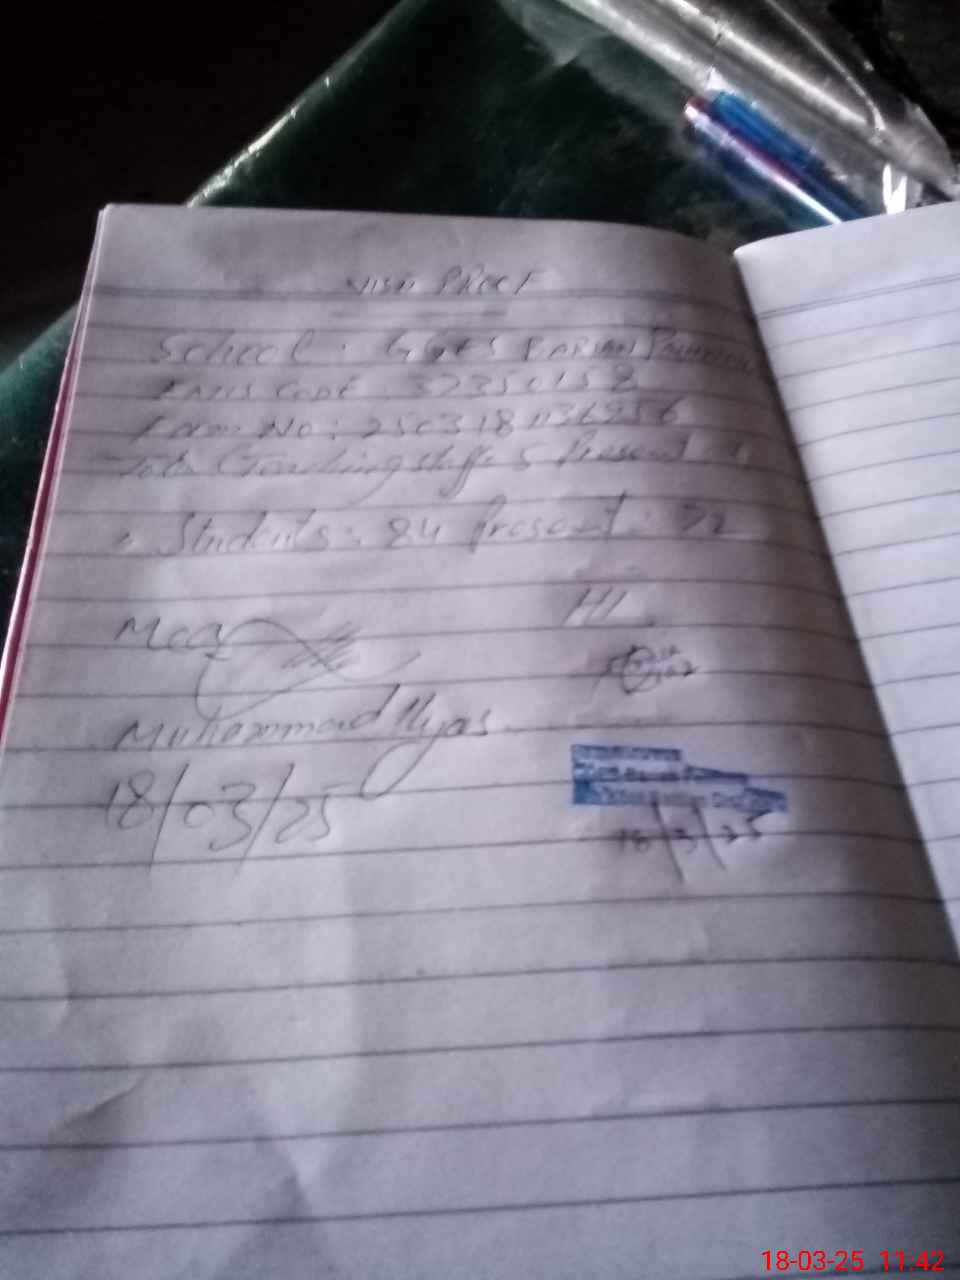 VISIT PROOF
School: GGES
EMIS CODE: 32350158
Form No: 2503181136956
Total Teaching staff: 5 Present
Students: 84 Present: 72
MCA
HT
Muhammad Ilyas
18/03/25
18/3/25
18-03-25 11:42